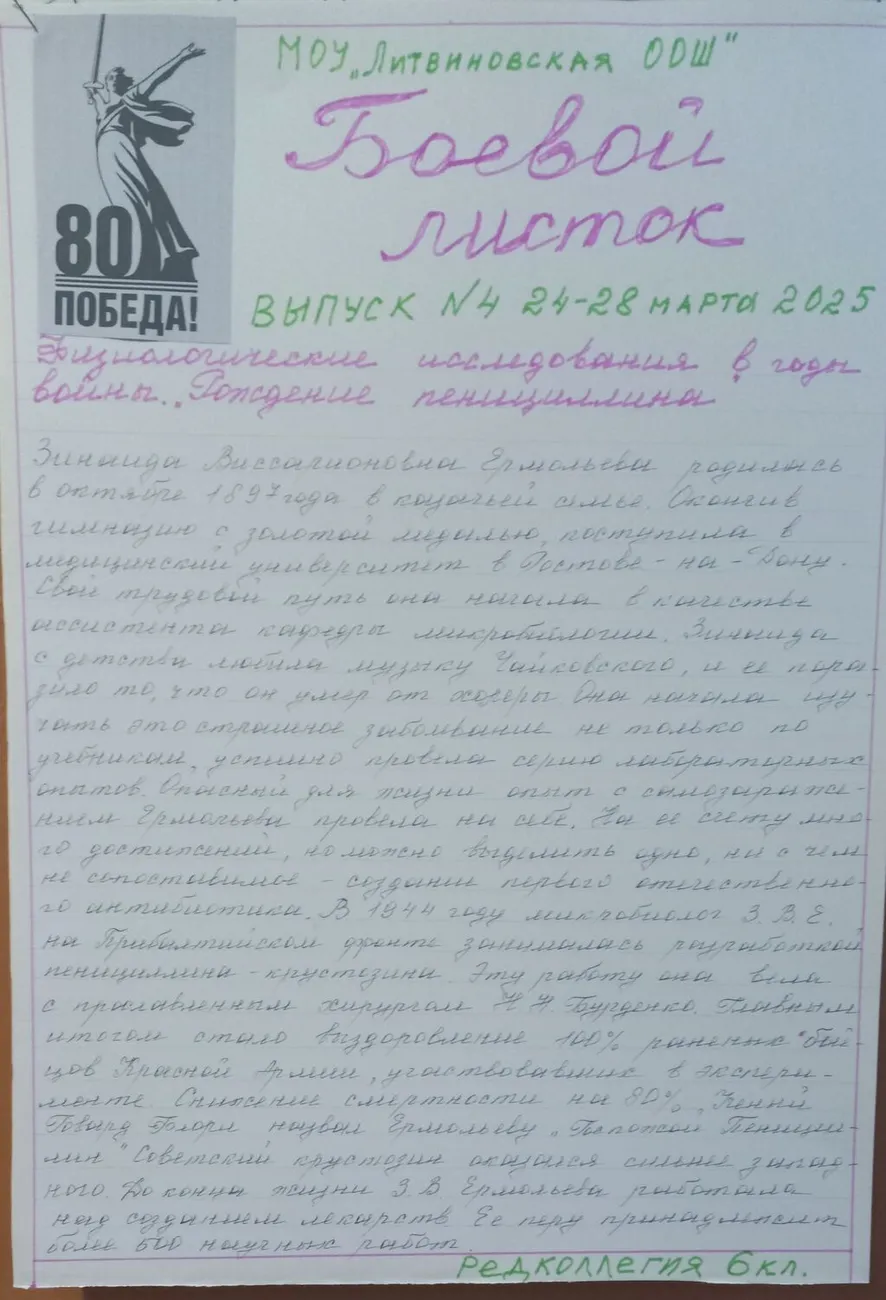 МОУ „Литвиновская ООШ"
Боевой
листок
80
ПОБЕДА!
ВЫПУСК N4 24-28 марта 2025
Физиологические исследования в годы
войны. „Рождение пенициллина"
Зинаида Виссарионовна Ермольева родилась
в октябре 1897 года в казачьей семье. Окончив
гимназию с золотой медалью, поступила в
медицинский университет в Ростове-на-Дону.
Свой трудовой путь она начала в качестве
ассистента кафедры микробиологии. Зинаида
с детства любила музыку Чайковского, и ее пора-
зило то, что он умер от холеры Она начала изу-
чать это страшное заболевание не только по
учебникам, успешно провела серию лабораторных
опытов. Опасный для жизни опыт с самозараже-
нием Ермольева провела на себе. На ее счету мно-
го достижений, но можно выделить одно, ни с чем
не сопоставимое - создание первого отечественно-
го антибиотика. В 1944 году микробиолог З.В.Е.
на Прибалтийском фронте занималась разработкой
пенициллина - крустозина. Эту работу она вела
с прославленным хирургом Н Н. Бурденко. Главным
итогом стало выздоровление 100% раненых бой-
цов Красной Армии, участвовавших в экспери-
менте. Снижение смертности на 80%.
Говард Флори назвал Ермольеву „Госпожой Пеници-
лин" Советский крустозин оказался сильнее запад-
ного. До конца жизни З.В. Ермольева работала
над созданием лекарств. Ее перу принадлежит
более 500 научных работ.
РЕДКОЛЛЕГИЯ 6 кл.